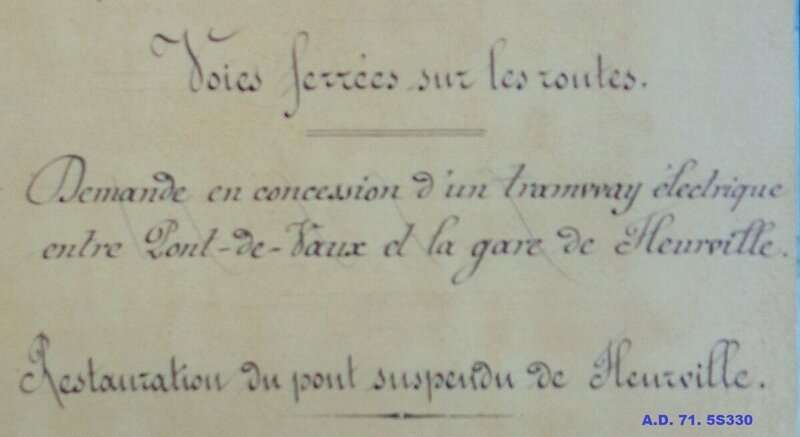 Voies ferrées sur les routes.
Demande en concession d'un tramway électrique
entre Pont-de-Vaux et la gare de Fleurville.
Restauration du pont suspendu de Fleurville.
A.D. 71. 5S330